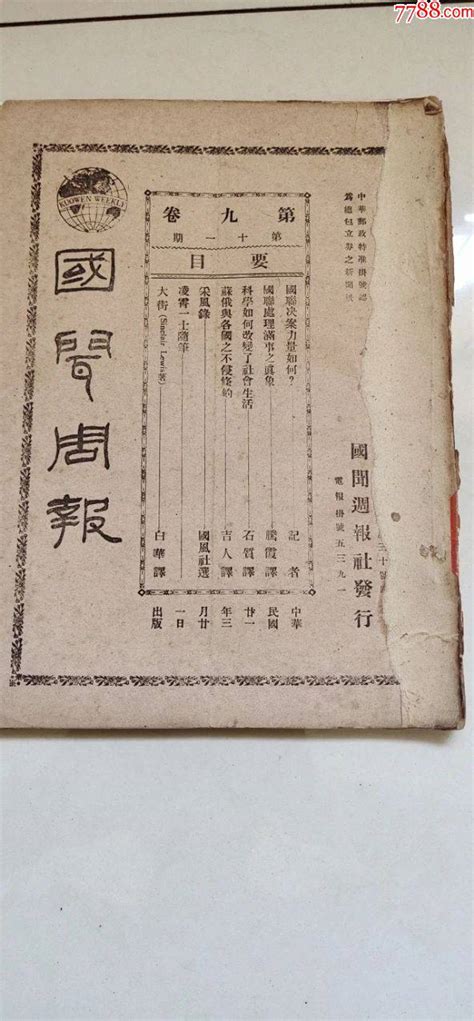 7788.com
中華郵政特准掛號認
爲總包立券之新聞紙
國聞週報社發行
電報掛號五三九一
三十號
第九卷
第十一期
要目
國聯決案力量如何? 記者
國聯處理滿事之眞象 霞譯
科學如何改變了社會生活 石質譯
蘇俄與各國之不侵條約 吉人譯
采風錄 國風社選
凌霄一士隨筆
大街(Sinclair Lewis著) 白華譯
中華民國廿一年三月廿一日出版
KUOWEN WEEKLY
國聞周報